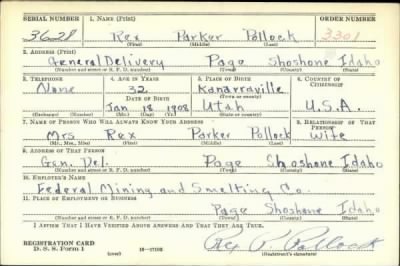 SERIAL NUMBER 1. NAME (Print) ORDER NUMBER
3628 Rex Parker Pollock 3301
(First) (Middle) (Last)
2. ADDRESS (Print)
General Delivery Page Shoshone Idaho
(Number and street or R. F. D. number) (Town) (County) (State)
3. TELEPHONE 4. AGE IN YEARS 5. PLACE OF BIRTH 6. COUNTRY OF CITIZENSHIP
None 32 Kanarraville
DATE OF BIRTH (Town or county)
Jan 18 1908 Utah U.S.A.
(Exchange) (Number) (Mo.) (Day) (Yr.) (State or country)
7. NAME OF PERSON WHO WILL ALWAYS KNOW YOUR ADDRESS 8. RELATIONSHIP OF THAT PERSON
Mrs Rex Parker Pollock Wife
(Mr., Mrs., Miss) (First) (Middle) (Last)
9. ADDRESS OF THAT PERSON
Gen. Del. Page Shoshone Idaho
(Number and street or R. F. D. number) (Town) (County) (State)
10. EMPLOYER'S NAME
Federal Mining and Smelting Co.
11. PLACE OF EMPLOYMENT OR BUSINESS
Page Shoshone Idaho
(Number and street or R. F. D. number) (Town) (County) (State)
I AFFIRM THAT I HAVE VERIFIED ABOVE ANSWERS AND THAT THEY ARE TRUE.
REGISTRATION CARD Rex P. Pollock
D. S. S. Form 1 (over) (Registrant's signature)